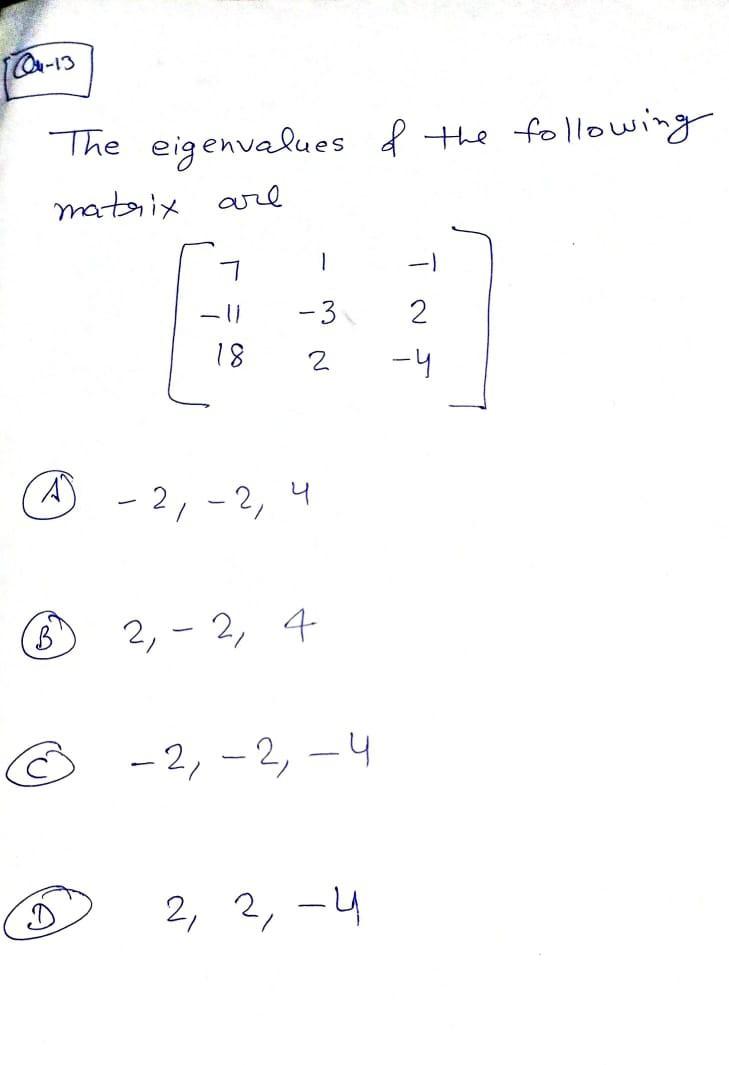 Qu-13
The eigenvalues of the following
matrix are
7 1 -1
-11 -3 2
18 2 -4
A -2, -2, 4
B 2, -2, 4
C -2, -2, -4
D 2, 2, -4